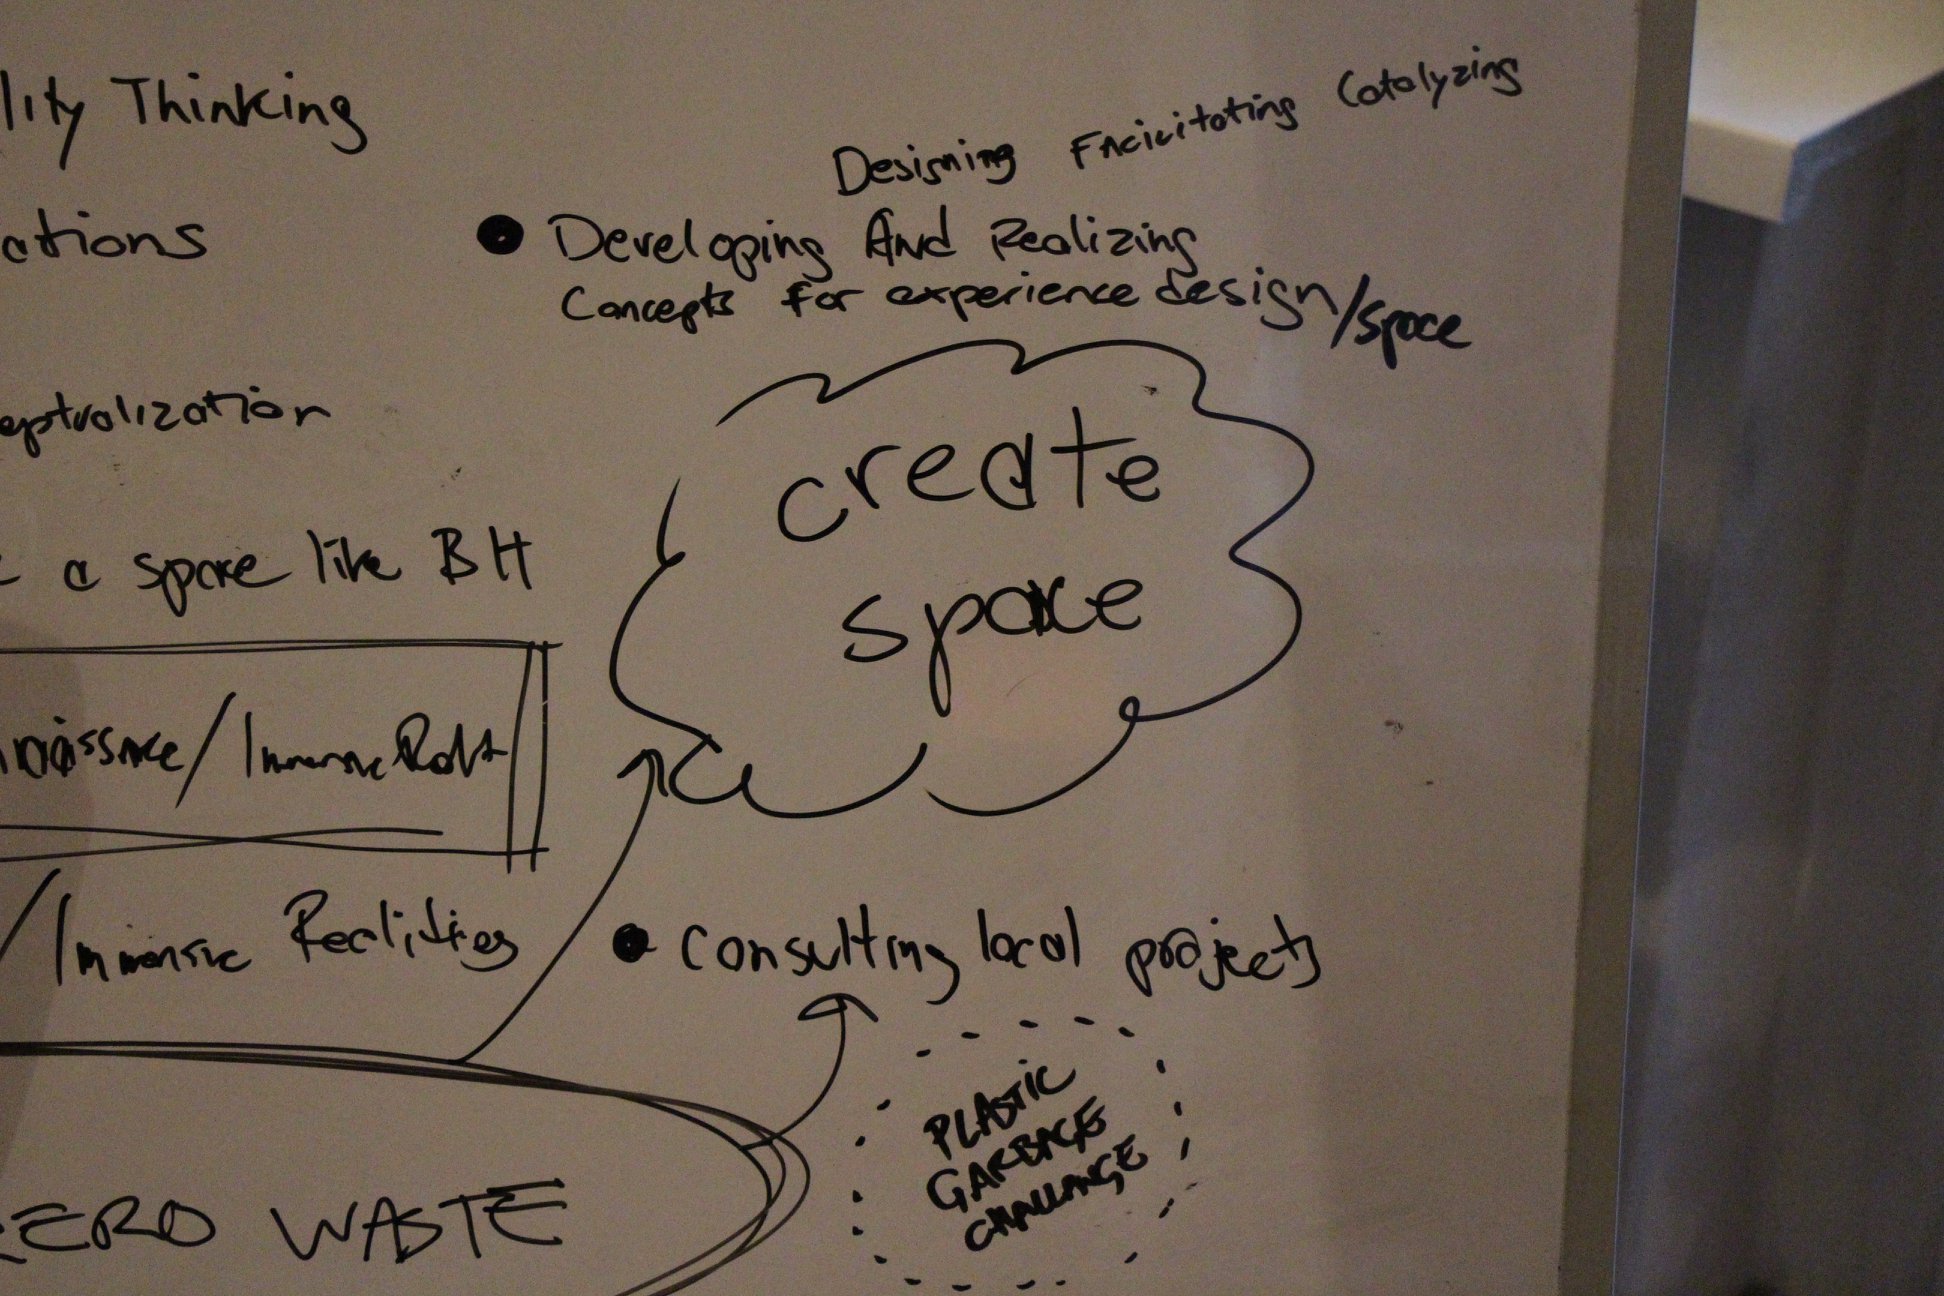 lity Thinking
Designing Facilitating Catalyzing
ations
● Developing And Realizing
Concepts for experience design/space
eptualization
create
space
a space like BH
/
/Immersive Realities
● Consulting local projects
PLASTIC
GARBAGE
CHALLANGE
ZERO WASTE